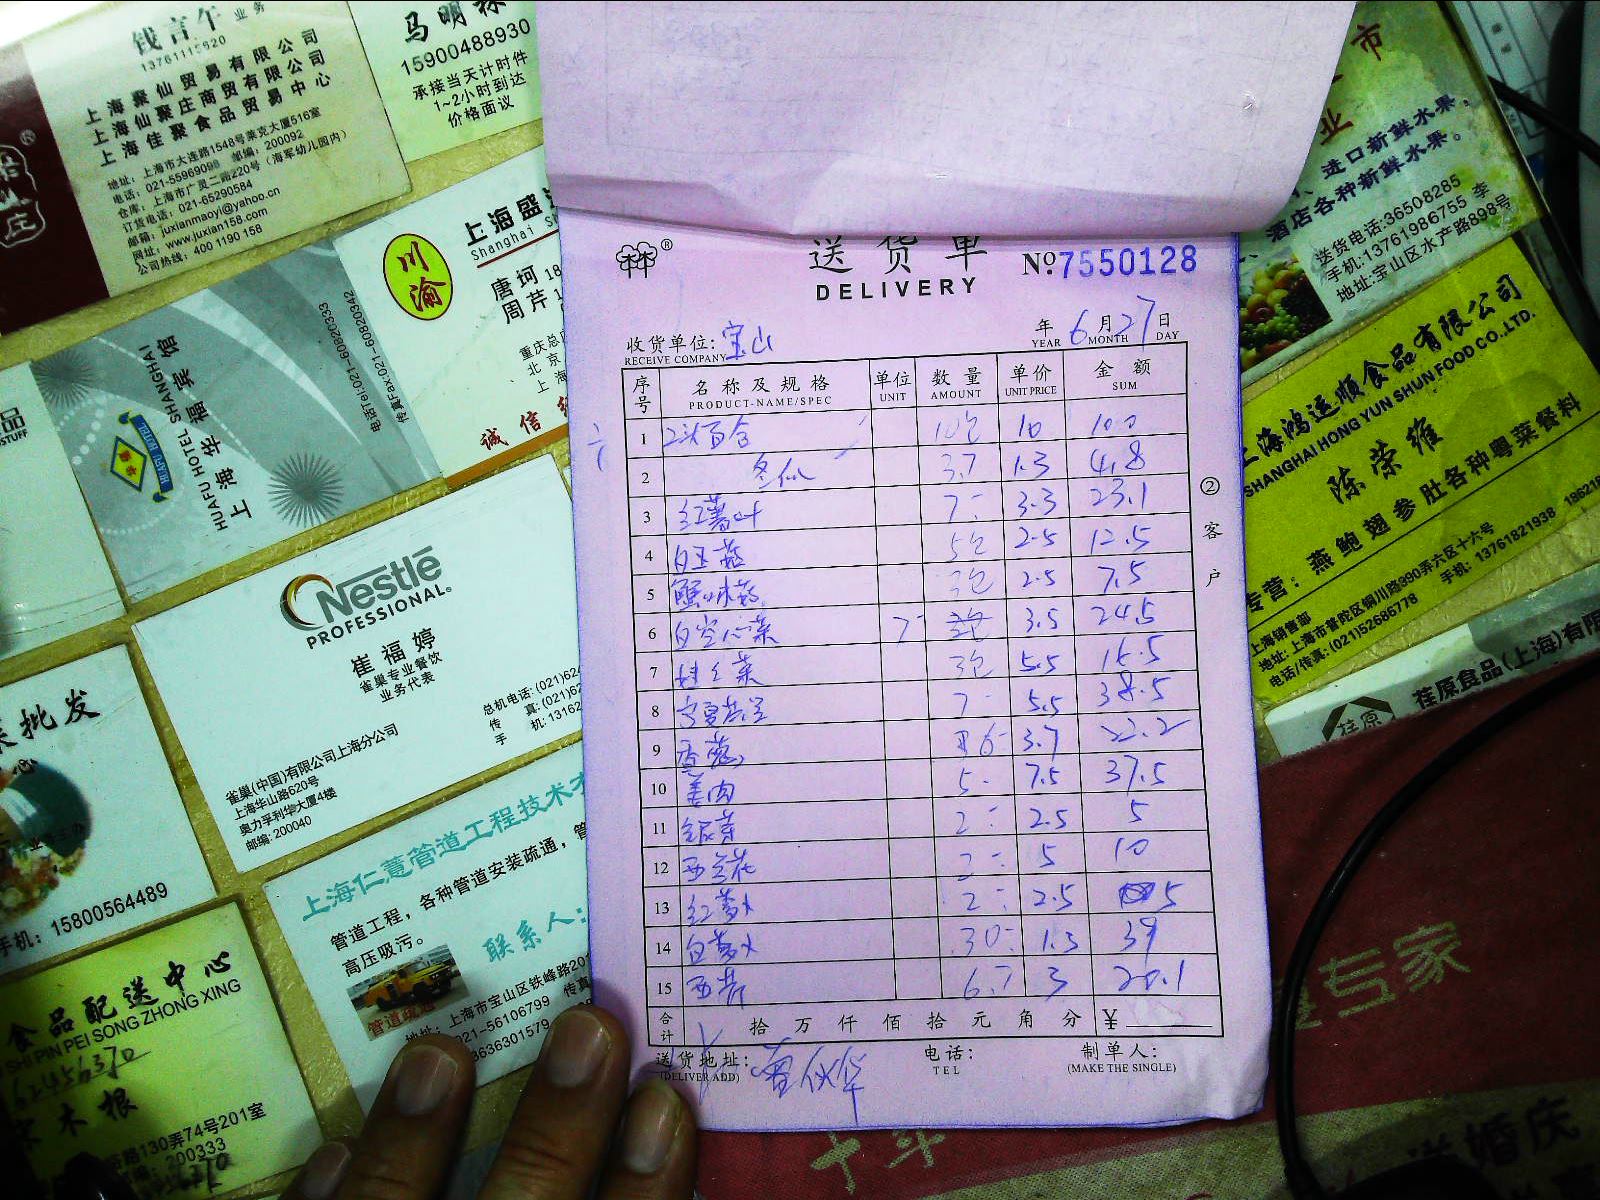 钱言午 业务
13761115820
上海聚仙贸易有限公司
上海仙聚庄商贸有限公司
上海佳聚食品贸易中心
地址:上海市大连路1548号莱克大厦516室
电话:021-55969098 邮编:200092
仓库:上海市广灵二路220号(海军幼儿园内)
订货电话:021-65290584
邮箱:juxianmaoyi@yahoo.cn
网址:www.juxian158.com
公司热线:400 1190 158
庄
马明
15900488930
承接当天计时件
1~2小时到达
价格面议
川渝
上海盛
Shanghai
唐珂 18
周芹 1
重庆总
北京
上海
诚信
HUAFU HOTEL SHANGHAI
上海华福宾馆
电话Tel:021-60820333
传真Fax:021-60820342
Nestlé
PROFESSIONAL
崔福婷
雀巢专业餐饮
业务代表
雀巢(中国)有限公司上海分公司
上海华山路620号
奥力孚利华大厦4楼
邮编:200040
总机电话:(021)62
传 真:(021)62
手 机:13162
批发
手机:15800564489
上海仁薏管道工程技术
管道工程,各种管道安装疏通,管
高压吸污。
联系人:
管道疏通
上海市宝山区铁峰路
021-56106799 传真
3636301579
食品配送中心
SHI PIN PEI SONG ZHONG XING
62456370
木根
路130弄74号201室
200333
送货单
DELIVERY
No.7550128
收货单位:宝山
RECEIVE COMPANY
年 6月27日
YEAR MONTH DAY
序号 名称及规格 单位 数量 单价 金额
PRODUCT-NAME/SPEC UNIT AMOUNT UNIT PRICE SUM
1 2头百合 10包 10 100
2 冬瓜 3.7 1.3 4.8
3 红薯叶 7 3.3 23.1
4 白玉菇 5包 2.5 12.5
5 蟹味菇 3包 2.5 7.5
6 白空心菜 7 3.5 24.5
7 3包 5.5 16.5
8 宁夏 7 5.5 38.5
9 香菇 6 3.7 22.2
10 姜肉 5 7.5 37.5
11 银芽 2 2.5 5
12 西兰花 2 5 10
13 红萝卜 2 2.5 5
14 白萝卜 30 1.3 39
15 西芹 6.7 3 20.1
合计 拾万仟佰拾元角分 ¥
送货地址: 电话: 制单人:
(DELIVER ADD) TEL (MAKE THE SINGLE)
②客户
市
业
、进口新鲜水果,
酒店各种新鲜水果。
送货电话:36508285
手机:13761986755 李
地址:宝山区水产路898号
上海鸿运顺食品有限公司
SHANGHAI HONG YUN SHUN FOOD CO.,LTD.
陈荣维
专营:燕鲍翅参肚各种粤菜餐料
上海销售部
地址:上海市普陀区铜川路390弄六区十六号
电话/传真:(021)52686778 手机:13761821938
荏原食品(上海)有限
荏原
专家
婚庆